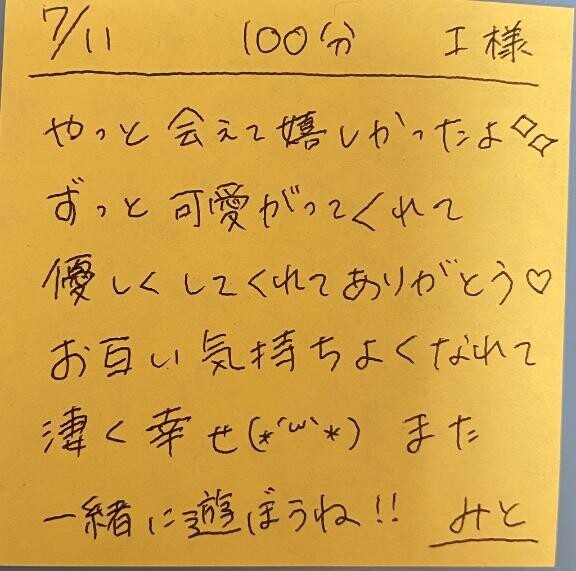 7/11 100分 I様
やっと会えて嬉しかったよ
ずっと可愛がってくれて
優しくしてくれてありがとう♡
お互い気持ちよくなれて
凄く幸せ(*´ω`*) また
一緒に遊ぼうね!! みと